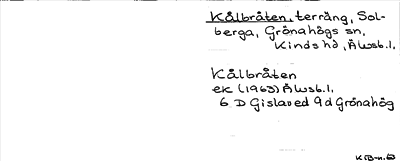 Kålbråten, terräng, Sol-
berga, Grönahögs sn,
Kinds hd, Älvsb.l.
Kålbråten
ek (1963) Älvsb.l.
6 D Gislaved 9d Grönahög